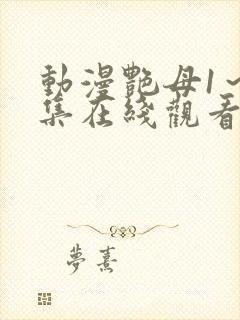 動漫艷母1~
集在綫觀看
夢熹